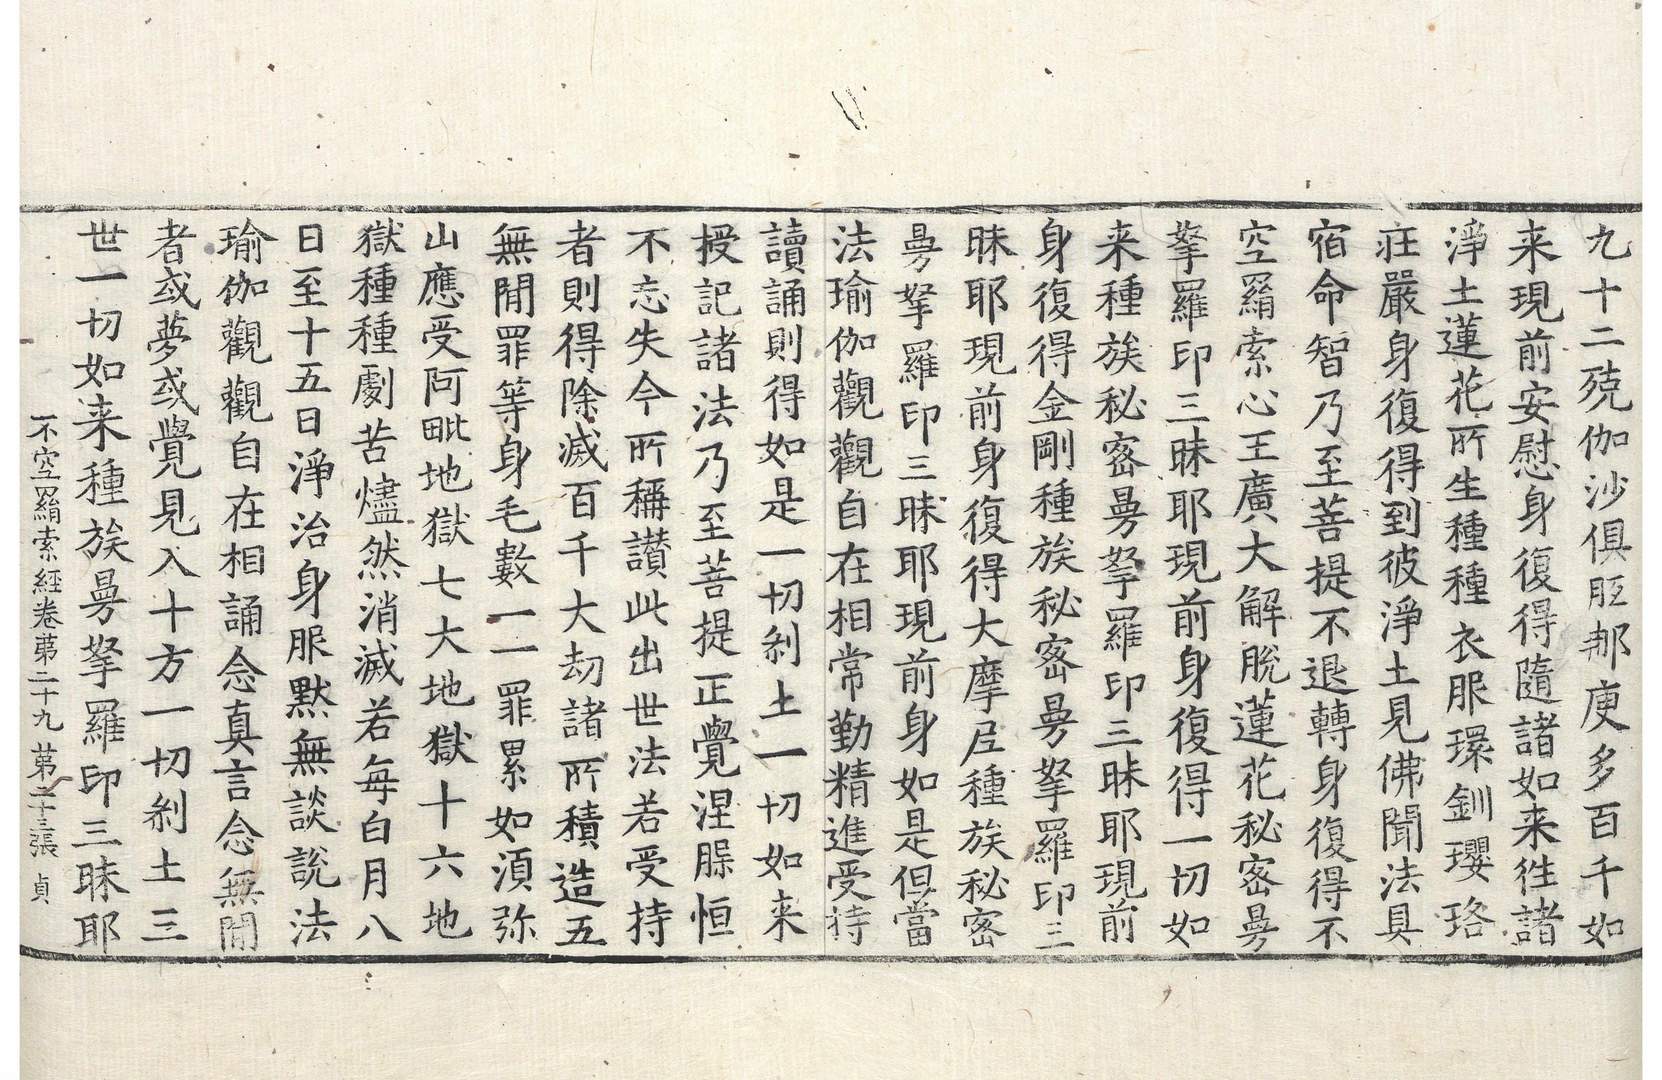 九十二殑伽沙俱胝那庾多百千如
来現前安慰身復得隨諸如来往諸
淨土蓮花所生種種衣服環釧瓔珞
莊嚴身復得到彼淨土見佛聞法具
宿命智乃至菩提不退轉身復得不
空羂索心王廣大解脫蓮花秘密曼
拏羅印三昧耶現前身復得一切如
来種族秘密曼拏羅印三昧耶現前
身復得金剛種族秘密曼拏羅印三
昧耶現前身復得大摩尼種族秘密
曼拏羅印三昧耶現前身如是但當
法瑜伽觀觀自在相常勤精進受持
讀誦則得如是一切刹土一切如来
授記諸法乃至菩提正覺涅槃恒
不忘失今所稱讃此出世法若受持
者則得除滅百千大劫諸所積造五
無間罪等身毛數一一罪累如須弥
山應受阿毗地獄七大地獄十六地
獄種種劇苦燼然消滅若每白月八
日至十五日淨治身服默無談說法
瑜伽觀觀自在相誦念真言念無間
者或夢或覺見入十方一切刹土三
世一切如来種族曼拏羅印三昧耶
不空羂索經卷第二十九 第二十三張 貞